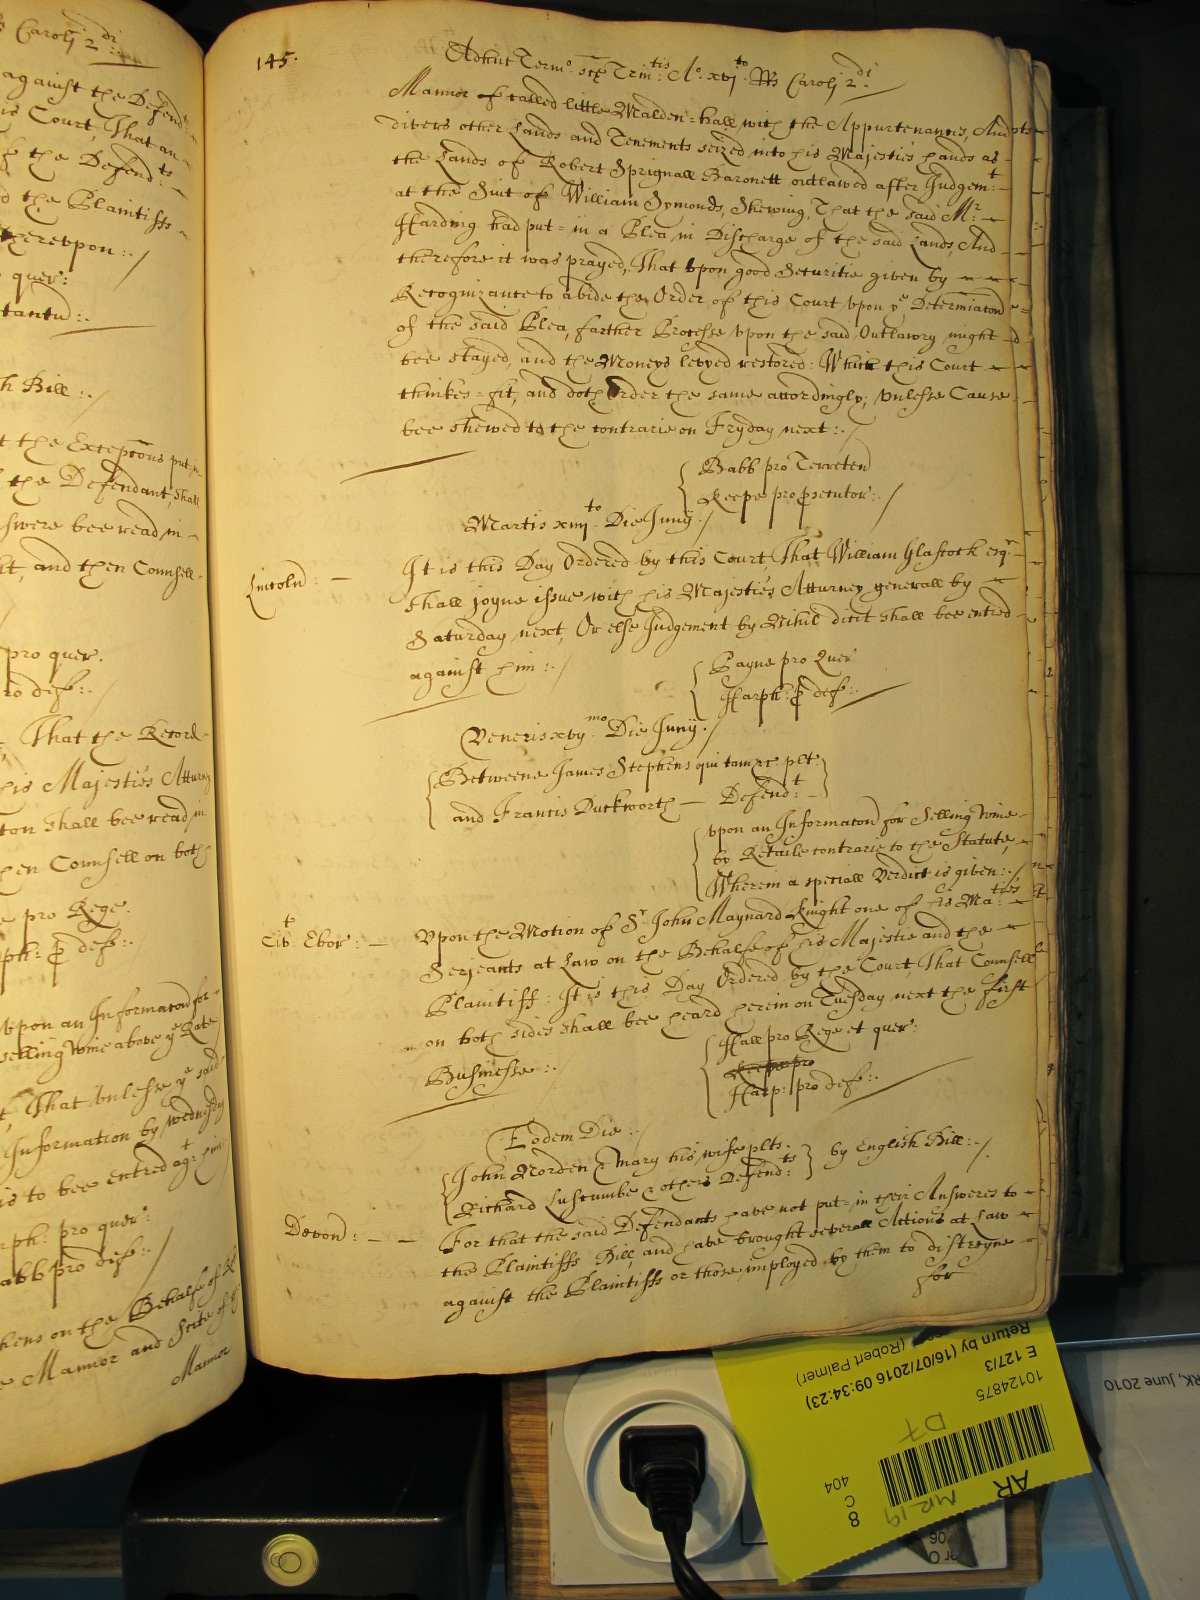 Caroli 2di:
against the Defendt
is Court, That an
the Defendts:
the Plaintiffs
thereupon:./
quer:
tantu:.
h Bill:./
t the Exceptons put in
the Defendant, shall
swere bee read in
lt, and then Counsell
pro quer.
ro def:.
That the Record
his Majesties Atturny
ton shall bee read in
hen Counsell on both
e pro Rege.
ph: p def:./
vpon an Informacon for
selling Wine above ye Rate
t, That vnlesse ye said
Information by wednesday
is to bee entred agt: him
rph: pro quer:
abb pro def:./
hens on the Behalfe of
e Mannor and Scite of
Mannor
145.
Adhuc Termo: sce Trintis: Ao: xvjto RRs Caroli 2di:
Mannor of called little Malden=hall with the Appurtenances, And
divers other Lands and Tenements seized into his Majesties hands as
the Lands of Robert Sprignall Baronett outlawed after Judgemt:
at the Suit of William Symonds, Shewing, That the said Mr:
Harding had put=in a Plea in Discharge of the said Lands, And
therefore it was prayed, That vpon good Securitie given by
Recognizance to abide the Order of this Court vpon ye Determinacon
of the said Plea, farther Processe vpon the said Outlawry might
bee stayed, and the Moneys levyed restored: Which this Court
thinkes=fit, and doth Order the same accordingly; vnlesse Cause
bee shewed to the contrarie on Fryday next:./
Babb pro Terreten
Keepe pro psecutor:./
Martis xiiijto: Die Junij:/
Lincoln:
It is this Day Ordered by this Court, That William Glascock esqr
shall joyne issue with his Majesties Atturney generall by
Saturday next, Or else Judgement by Nihil dicit shall bee entred
against him:./
Payne pro Quer
Harph: p def:.
Veneris xvijmo: Die Junij:/
Betweene James Stephens qui tam &c plt
and Francis Duckworth Defendt:
vpon an Informacon for Selling Wine
by Retaile contrarie to the Statute,
Wherein a speciall Verdict is given:./
Civt: Ebor:
Vpon the Motion of Sr: John Maynard Knight one of his Maties:
Serjeants at Law on the Behalfe of his Majestie and the
Plaintiff: It is this Day Ordered by the Court, That Counsell
on both sides shall bee heard herein on Tuesday next the first
Businesse:./
Hall pro Rege et quer:
Keepe pro
Harp: pro def:./
Eodem Die:./
John Norden & Mary his wife plts.
Richard Luscumbe & others Defendts:
by English Bill:./
Devon:
For that the said Defendants have not put=in their Answeres to
the Plaintiffs Bill, and have brought severall Actions at Law
against the Plaintiffs or those imployed by them to distreyne
for
Return by (16/07/2016 09:34:23)
(Robert Palmer)
E 127/3
10124875
D7
404
C
8
AR
MR 19
RK, June 2010